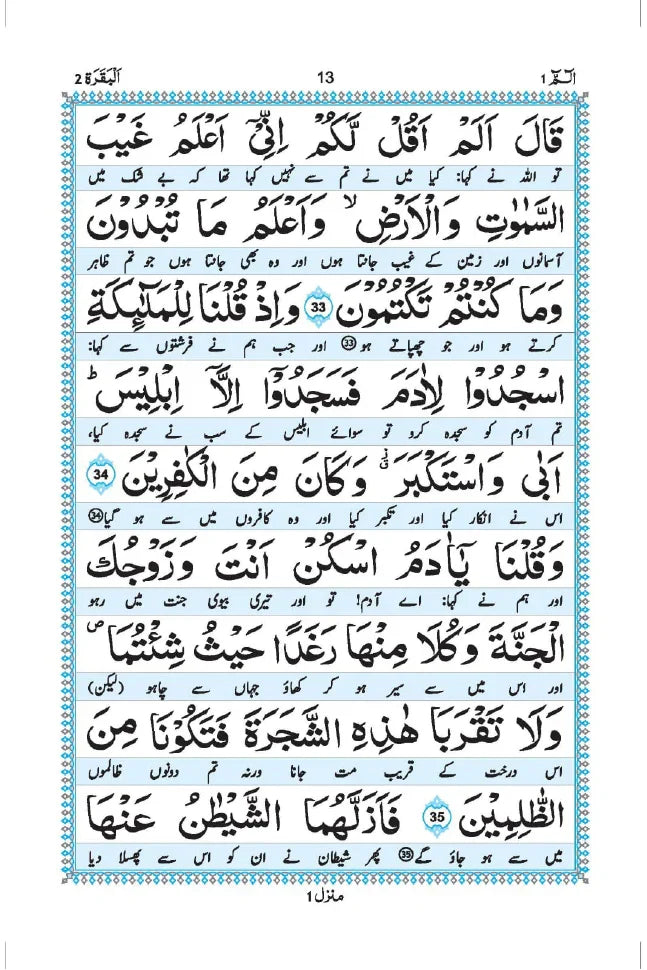 الٓمّٓ 1 13 اَلْبَقَرَة 2
قَالَ اَلَمْ اَقُلْ لَّكُمْ اِنِّیْۤ اَعْلَمُ غَیْبَ
تو اللہ نے کہا: کیا میں نے تم سے نہیں کہا تھا کہ بے شک میں
السَّمٰوٰتِ وَالْاَرْضِ ۙ وَاَعْلَمُ مَا تُبْدُوْنَ
آسمانوں اور زمین کے غیب جانتا ہوں اور وہ بھی جانتا ہوں جو تم ظاہر
وَمَا كُنْتُمْ تَكْتُمُوْنَ 33 وَاِذْ قُلْنَا لِلْمَلٰٓئِكَةِ
کرتے ہو اور جو چھپاتے ہو 33 اور جب ہم نے فرشتوں سے کہا:
اسْجُدُوْا لِاٰدَمَ فَسَجَدُوْۤا اِلَّاۤ اِبْلِیْسَ ؕ
تم آدم کو سجدہ کرو تو سوائے ابلیس کے سب نے سجدہ کیا،
اَبٰی وَاسْتَكْبَرَ ٘ۗ وَكَانَ مِنَ الْكٰفِرِیْنَ 34
اس نے انکار کیا اور تکبر کیا اور وہ کافروں میں سے ہو گیا 34
وَقُلْنَا یٰۤاٰدَمُ اسْكُنْ اَنْتَ وَزَوْجُكَ
اور ہم نے کہا: اے آدم! تو اور تیری بیوی جنت میں رہو
الْجَنَّةَ وَكُلَا مِنْهَا رَغَدًا حَیْثُ شِئْتُمَا ۪
اور اس میں سے سیر ہو کر کھاؤ جہاں سے چاہو (لیکن)
وَلَا تَقْرَبَا هٰذِهِ الشَّجَرَةَ فَتَكُوْنَا مِنَ
اس درخت کے قریب مت جانا ورنہ تم دونوں ظالموں
الظّٰلِمِیْنَ 35 فَاَزَلَّهُمَا الشَّیْطٰنُ عَنْهَا
میں سے ہو جاؤ گے 35 پھر شیطان نے ان کو اس سے پھسلا دیا
منزل 1